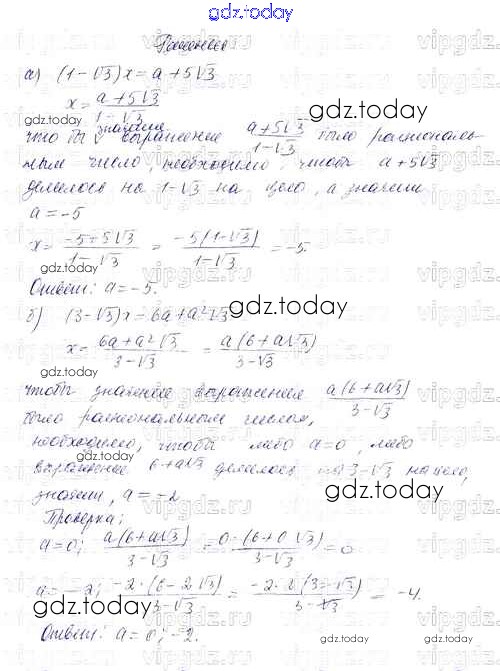 gdz.today
Решение
а) (1-√3)x = a+5√3
x = a+5√3 / 1-√3
что бы значение выражение a+5√3 / 1-√3 было рациональ-
ным число, необходимо, чтобы a+5√3
делилось на 1-√3 на цело, а значит
a = -5
x = -5+5√3 / 1-√3 = -5(1-√3) / 1-√3 = -5.
Ответ: a = -5.
б) (3-√3)x = 6a+a²√3
x = 6a+a²√3 / 3-√3 = a(6+a√3) / 3-√3
чтобы значение выражения a(6+a√3) / 3-√3
было рациональным числом,
необходимо, чтобы либо a=0, либо
выражение 6+a√3 делилось на 3-√3 нацело,
значит, a = -2
Проверка:
a=0; a(6+a√3) / 3-√3 = 0·(6+0√3) / 3-√3 = 0
a = -2; -2·(6-2√3) / 3-√3 = -2·2(3-√3) / 3-√3 = -4.
Ответ: a = 0; -2.